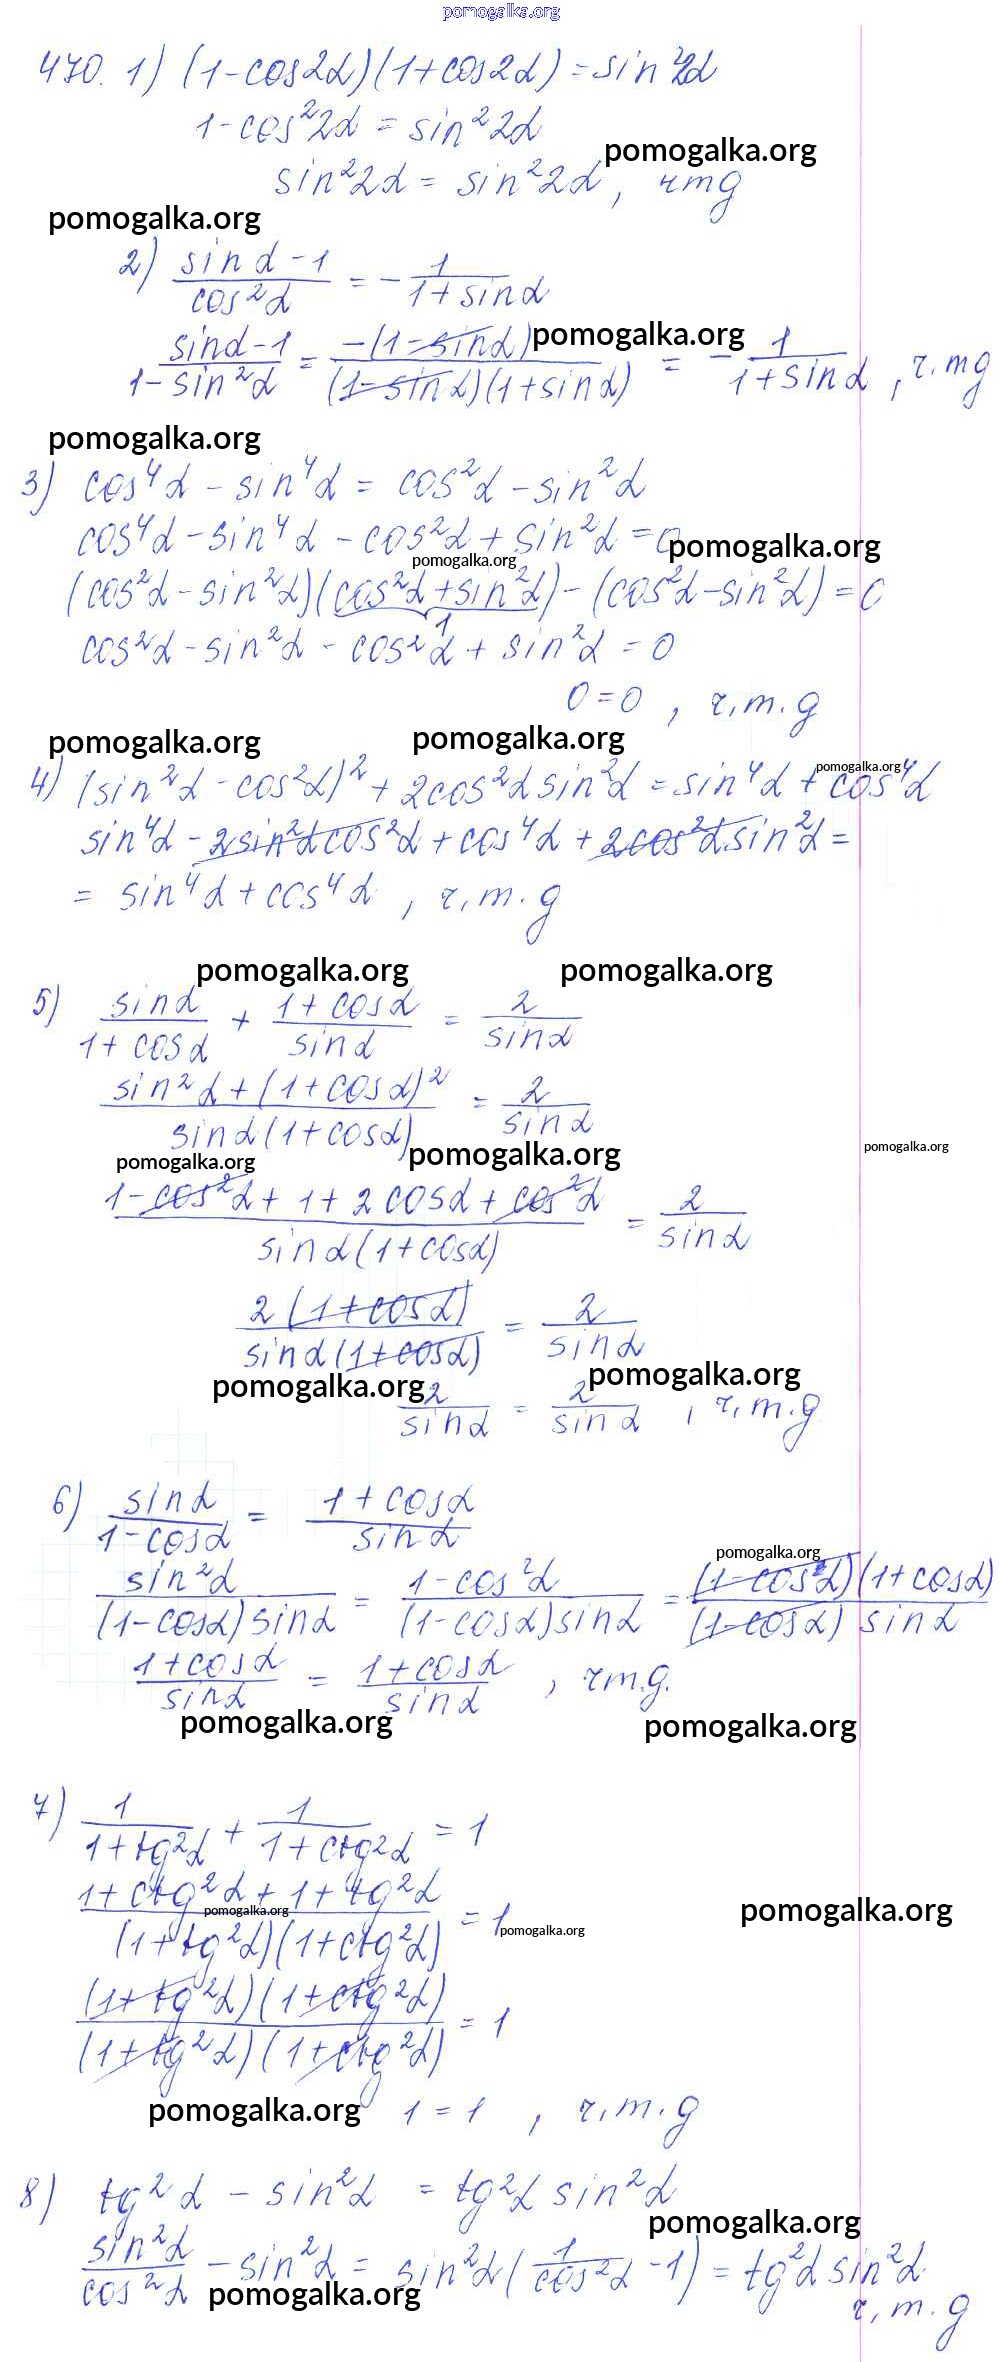 pomogalka.org
470. 1) (1-cos2α)(1+cos2α)=sin²2α
1-cos²2α = sin²2α
pomogalka.org
sin²2α = sin²2α, чтд
pomogalka.org
2) (sinα-1)/(cos²α) = -1/(1+sinα)
pomogalka.org
(sinα-1)/(1-sin²α) = (-(1-sinα))/((1-sinα)(1+sinα)) = -1/(1+sinα), ч.тд
pomogalka.org
3) cos⁴α - sin⁴α = cos²α - sin²α
cos⁴α - sin⁴α - cos²α + sin²α = 0
pomogalka.org
pomogalka.org
(cos²α - sin²α)(cos²α + sin²α) - (cos²α - sin²α) = 0
1
cos²α - sin²α - cos²α + sin²α = 0
0 = 0, ч.т.д
pomogalka.org pomogalka.org
pomogalka.org
4) (sin²α - cos²α)² + 2cos²α sin²α = sin⁴α + cos⁴α
sin⁴α - 2sin²α cos²α + cos⁴α + 2cos²α sin²α =
= sin⁴α + cos⁴α, ч.т.д
pomogalka.org pomogalka.org
5) sinα/(1+cosα) + (1+cosα)/sinα = 2/sinα
(sin²α + (1+cosα)²)/(sinα(1+cosα)) = 2/sinα
pomogalka.org pomogalka.org pomogalka.org
(1-cos²α + 1 + 2cosα + cos²α)/(sinα(1+cosα)) = 2/sinα
(2(1+cosα))/(sinα(1+cosα)) = 2/sinα
pomogalka.org pomogalka.org
2/sinα = 2/sinα, ч.т.д
6) sinα/(1-cosα) = (1+cosα)/sinα
pomogalka.org
sin²α/((1-cosα)sinα) = (1-cos²α)/((1-cosα)sinα) = ((1-cos²α)(1+cosα))/((1-cosα)sinα)
(1+cosα)/sinα = (1+cosα)/sinα, чт.д.
pomogalka.org pomogalka.org
7) 1/(1+tg²α) + 1/(1+ctg²α) = 1
(1+ctg²α + 1+tg²α)/((1+tg²α)(1+ctg²α)) = 1
pomogalka.org pomogalka.org pomogalka.org
((1+tg²α)(1+ctg²α))/((1+tg²α)(1+ctg²α)) = 1
pomogalka.org
1 = 1, ч.т.д
8) tg²α - sin²α = tg²α sin²α
pomogalka.org
sin²α/cos²α - sin²α = sin²α(1/cos²α - 1) = tg²α sin²α
pomogalka.org
ч.т.д